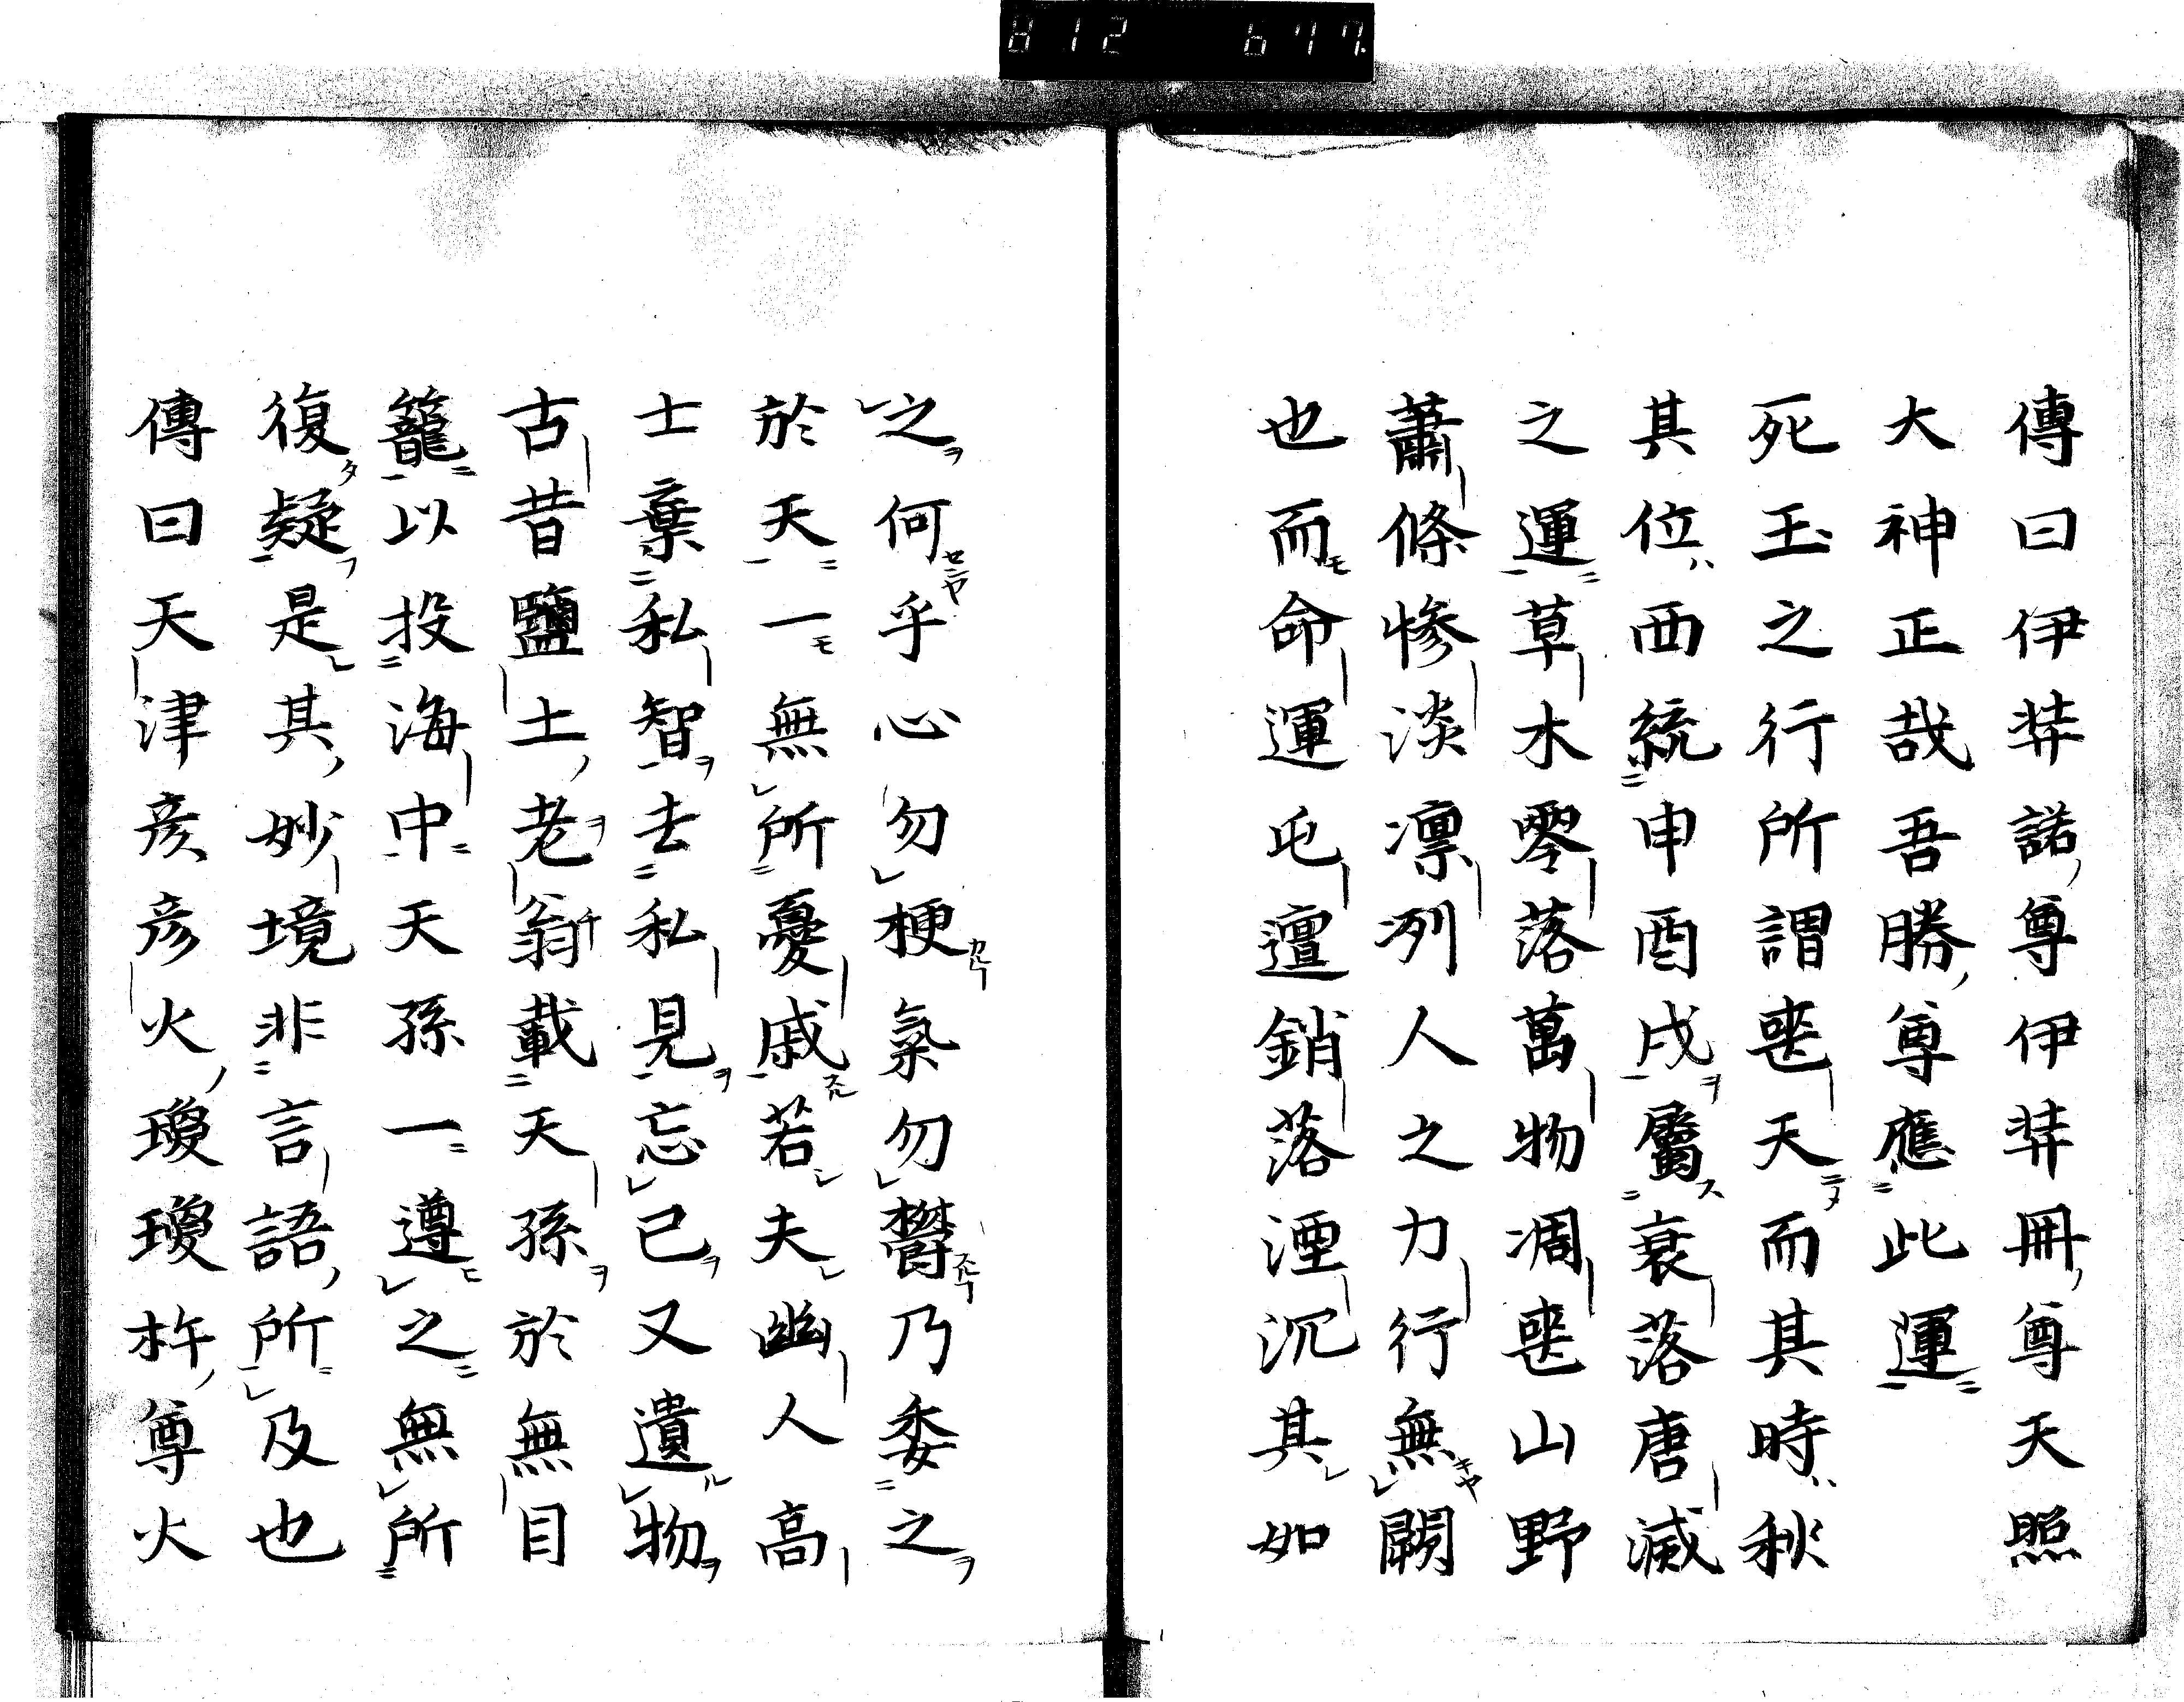 812 677
傳曰伊弉諾尊伊弉冊尊天照
大神正哉吾勝尊應此運
死王之行所謂喪天而其時秋
其位西統申酉戌屬衰落唐滅
之運草木零落萬物凋喪山野
蕭條慘淡凛冽人之力行無闕
也而命運屯邅銷落湮沉其如
之何乎心勿梗氣勿欝乃委之
於天一無所憂戚若夫幽人高
士棄私智去私見忘己又遺物
古昔鹽土老翁載天孫於無目
籠以投海中天孫一遵之無所
復疑是其妙境非言語所及也
傳曰天津彦彦火瓊瓊杵尊火